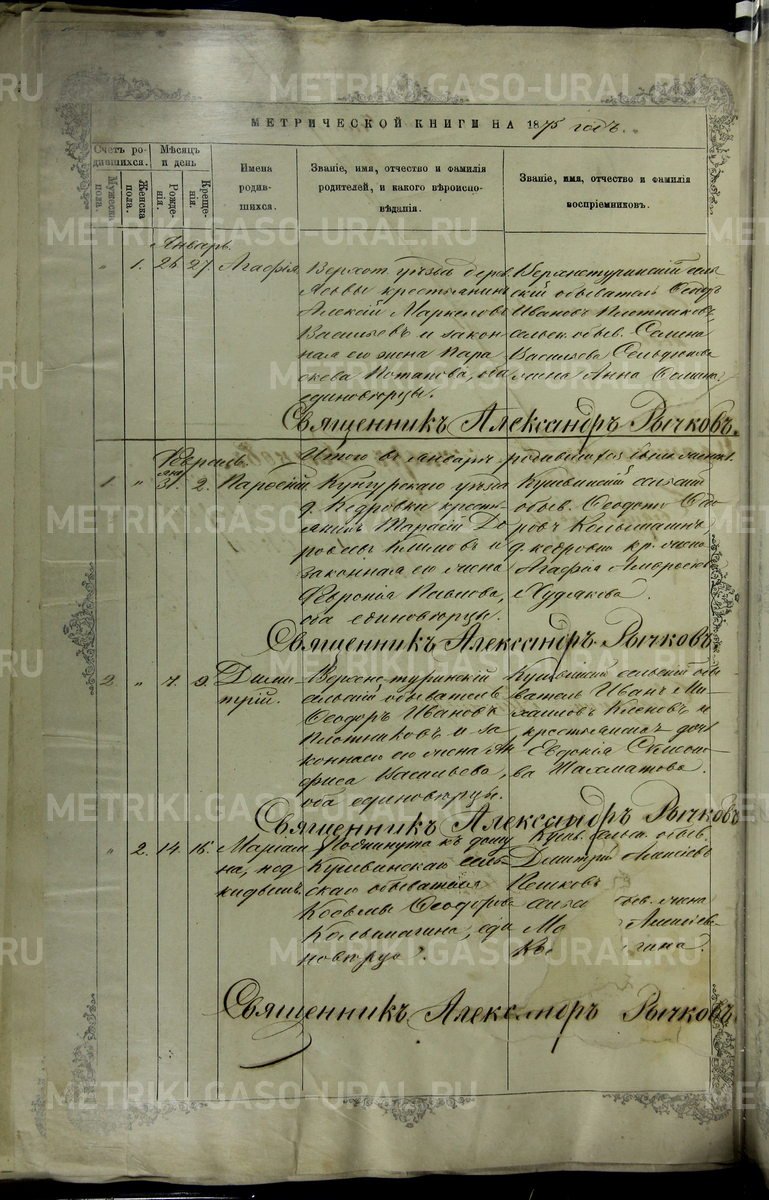 МЕТРИЧЕСКОЙ КНИГИ НА 1875 годъ.
Счетъ родившихся.
Мужеска пола.
Женска пола.
Мѣсяцъ и день
Рожденія.
Крещенія.
Имена родившихся.
Званіе, имя, отчество и фамилія родителей, и какого вѣроисповѣданія.
Званіе, имя, отчество и фамилія воспріемниковъ.
Январь.
" 1. 26. 27. Агафія
Верхот. уѣзда дерев.
крестьянинъ
Алексій Маркеловъ
Васильевъ и закон
ная его жена Пара
скева Потапова, оба
единовѣрцы.
Верхнетуринскій сель
скій обыватель Ѳеодоръ
Ивановъ Плотниковъ,
сельск. обыв. Семена
Васильева
жена Анна
Священникъ Александръ Рычковъ.
Итого въ январѣ родившихся
Февраль.
1 " 31. 2. Парѳеній
Кунгурскаго уѣзда
д. Кедровки кресть
янинъ Тарасій До
роѳеевъ Климовъ и
законная его жена
Февронія Павлова,
оба единовѣрцы.
Кушвинскій сельскій
обыв. Ѳеодотъ Ѳедо
ровъ Кельмагинъ
д. Кедровки кр. жена
Агафія Амвросіева
Худякова.
Священникъ Александръ Рычковъ
2 " 7. 9. Дими
трій.
Верхне-туринскій
сельскій обыватель
Ѳеодоръ Ивановъ
Плотниковъ и за
конная его жена Ан
фиса Васильева,
оба единовѣрцы.
Кушвинскій сельскій обы
ватель Иванъ Ми
хаиловъ Кленовъ и
крестьянская дочь
Евдокія
ва Шахматова.
Священникъ Александръ Рычковъ
" 2. 14. 16. Маріам
на, под
кидышъ.
Подкинута къ дому
Кушвинскаго сель
скаго обывателя
Козьмы Ѳеодорова
Кольмагина, еди
новѣрца.
Кушв. сельск. обыв.
Дмитрій Алексіевъ
Пешковъ
обыв. жена
Алексіев
гина.
Священникъ Александръ Рычковъ.
METRIKI.GASO-URAL.RU